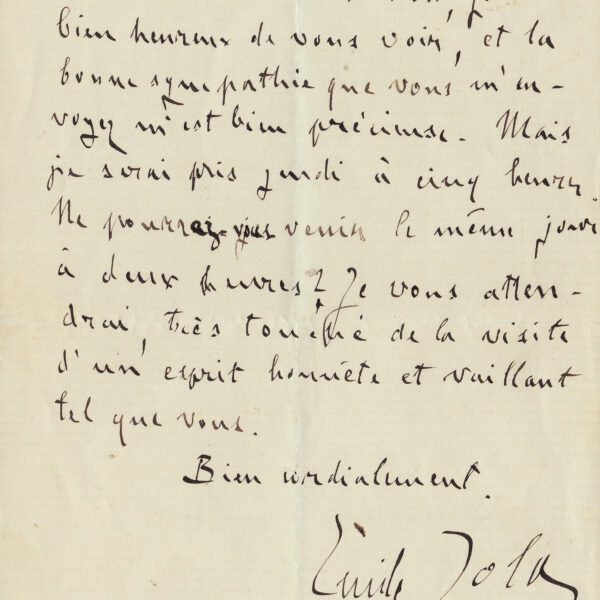 bien heureux de vous voir, et la
bonne sympathie que vous m'en-
voyez m'est bien précieuse. Mais
je serai pris jeudi à cinq heures.
Ne pourrez-vous venir le même jour
à deux heures? Je vous atten-
drai, très touché de la visite
d'un esprit honnête et vaillant
tel que vous.
Bien cordialement.
Emile Zola